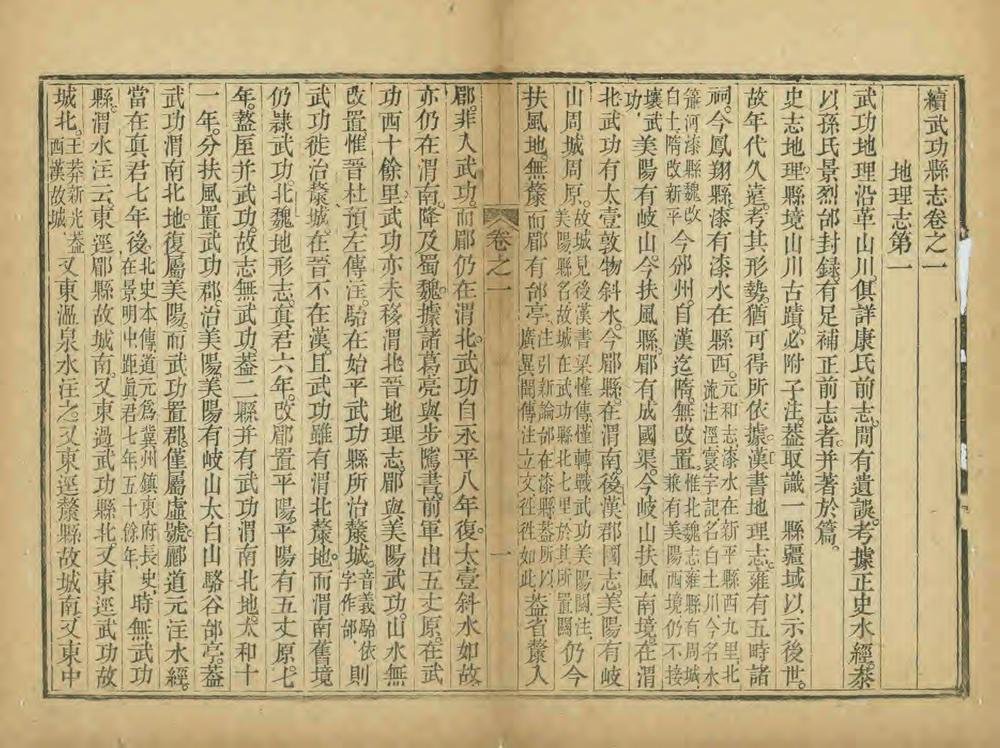 續武功縣志卷之一
地理志第一
武功地理沿革山川俱詳康氏前志間有遺誤考據正史水經泰
以孫氏景烈邰封錄有足補正前志者并著於篇
史志地理縣境山川古蹟必附子注葢取識一縣疆域以示後世
故年代久遠考其形勢猶可得所依據漢書地理志雍有五畤諸
祠今鳳翔縣漆有漆水在縣西元和志漆水在新平縣西九里北流注涇寰宇記名白土川今名水
簾河漆縣魏改白土隋改新平今邠州自漢迄隋無改置惟北魏志漆縣有周城兼有美陽西境仍不接
壤武功美陽有岐山今扶風縣郿有成國渠今岐山扶風南境在渭
北武功有太壹敦物斜水今郿縣在渭南後漢郡國志美陽有岐
山周城周原故城見後漢書梁慬傳慬轉戰武功美陽關注美陽縣名故城在武功縣北七里於其所置關仍今
扶風地無斄而郿有邰亭注引新論邰在漆縣葢所以廣異聞傳注立文徃徃如此葢省斄入
郿非入武功而郿仍在渭北武功自永平八年復太壹斜水如故
亦仍在渭南降及蜀魏據諸葛亮與步隲書前軍出五丈原在武
功西十餘里武功亦未移渭北晉地理志郿與美陽武功山水無
改置惟晉杜預左傳注駘在始平武功縣所治斄城音義駘依字作邰則
武功徙治斄城在晉不在漢且武功雖有渭北斄地而渭南舊境
仍隷武功北魏地形志眞君六年改郿置平陽平陽有五丈原七
年盩厔并武功故志無武功葢二縣并有武功渭南北地太和十
一年分扶風置武功郡治美陽美陽有岐山太白山駱谷邰亭葢
武功渭南北地復屬美陽而武功置郡僅屬虛號酈道元注水經
當在眞君七年後北史本傳道元爲冀州鎮東府長史在景明中距眞君七年五十餘年時無武功
縣渭水注云東逕郿縣故城南又東過武功縣北又東逕武功故
城北王莽新光葢西漢故城又東溫泉水注之又東逕斄縣故城南又東中
卷之一
一